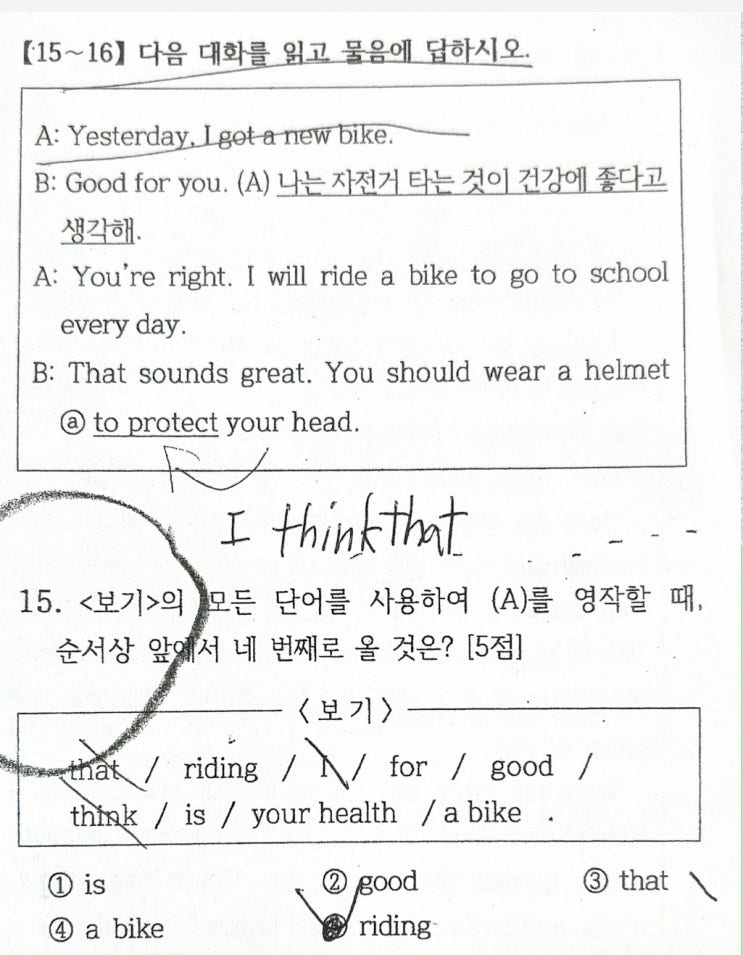 【15~16】 다음 대화를 읽고 물음에 답하시오.
A: Yesterday, I got a new bike.
B: Good for you. (A) 나는 자전거 타는 것이 건강에 좋다고
생각해.
A: You're right. I will ride a bike to go to school
every day.
B: That sounds great. You should wear a helmet
ⓐ to protect your head.
I think that - - - -
15. <보기>의 모든 단어를 사용하여 (A)를 영작할 때,
순서상 앞에서 네 번째로 올 것은? [5점]
< 보 기 >
that / riding / I / for / good /
think / is / your health / a bike .
① is ② good ③ that
④ a bike ⑤ riding